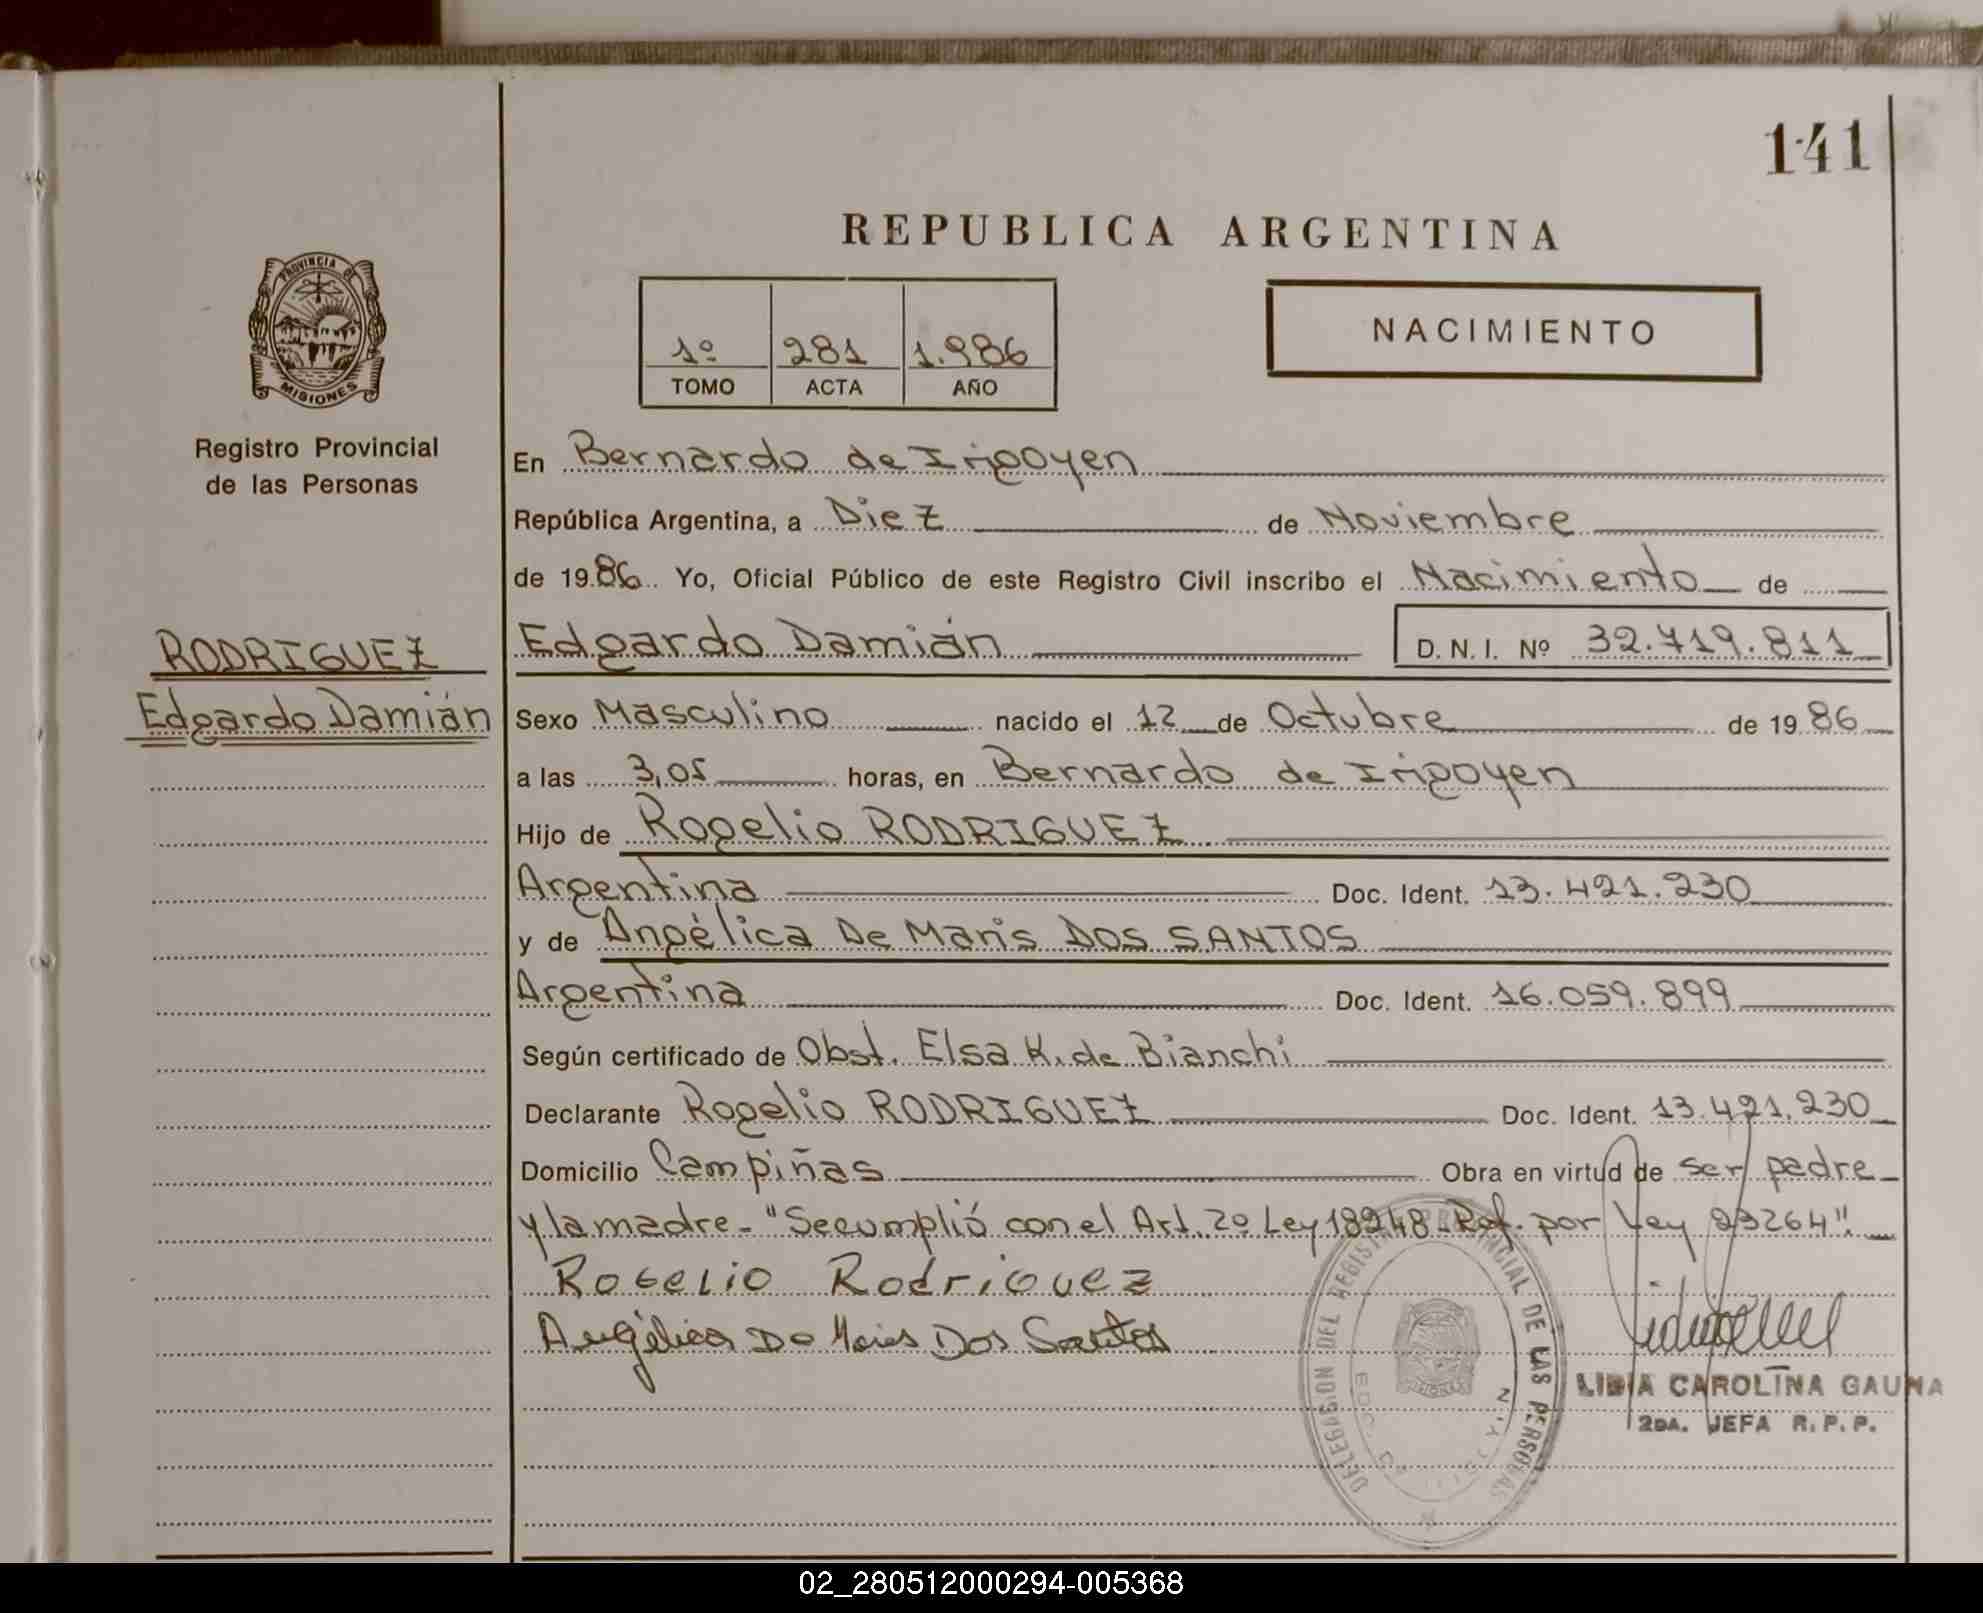 141
REPUBLICA ARGENTINA
PROVINCIA DE
MISIONES
1º 281 1.986
TOMO ACTA AÑO
NACIMIENTO
Registro Provincial
de las Personas
En Bernardo de Irigoyen
República Argentina, a Diez de Noviembre
de 1986 Yo, Oficial Público de este Registro Civil inscribo el Nacimiento de
RODRIGUEZ
Edgardo Damián
Edgardo Damián D. N. I. Nº 32.719.811
Sexo Masculino nacido el 12 de Octubre de 1986
a las 3,05 horas, en Bernardo de Irigoyen
Hijo de Rogelio RODRIGUEZ
Argentina Doc. Ident. 13.421.230
y de Angélica De Maris DOS SANTOS
Argentina Doc. Ident. 16.059.899
Según certificado de Obst. Elsa K. de Bianchi
Declarante Rogelio RODRIGUEZ Doc. Ident. 13.421.230
Domicilio Campiñas Obra en virtud de ser padre
y la madre - "Se cumplió con el Art. 2º Ley 18248 - Ref. por Ley 23264".
Rogelio Rodriguez
Angélica De Maris Dos Santos
DELEGACION DEL REGISTRO PROVINCIAL DE LAS PERSONAS
LIDIA CAROLINA GAUNA
2DA. JEFA R. P. P.
02_280512000294-005368